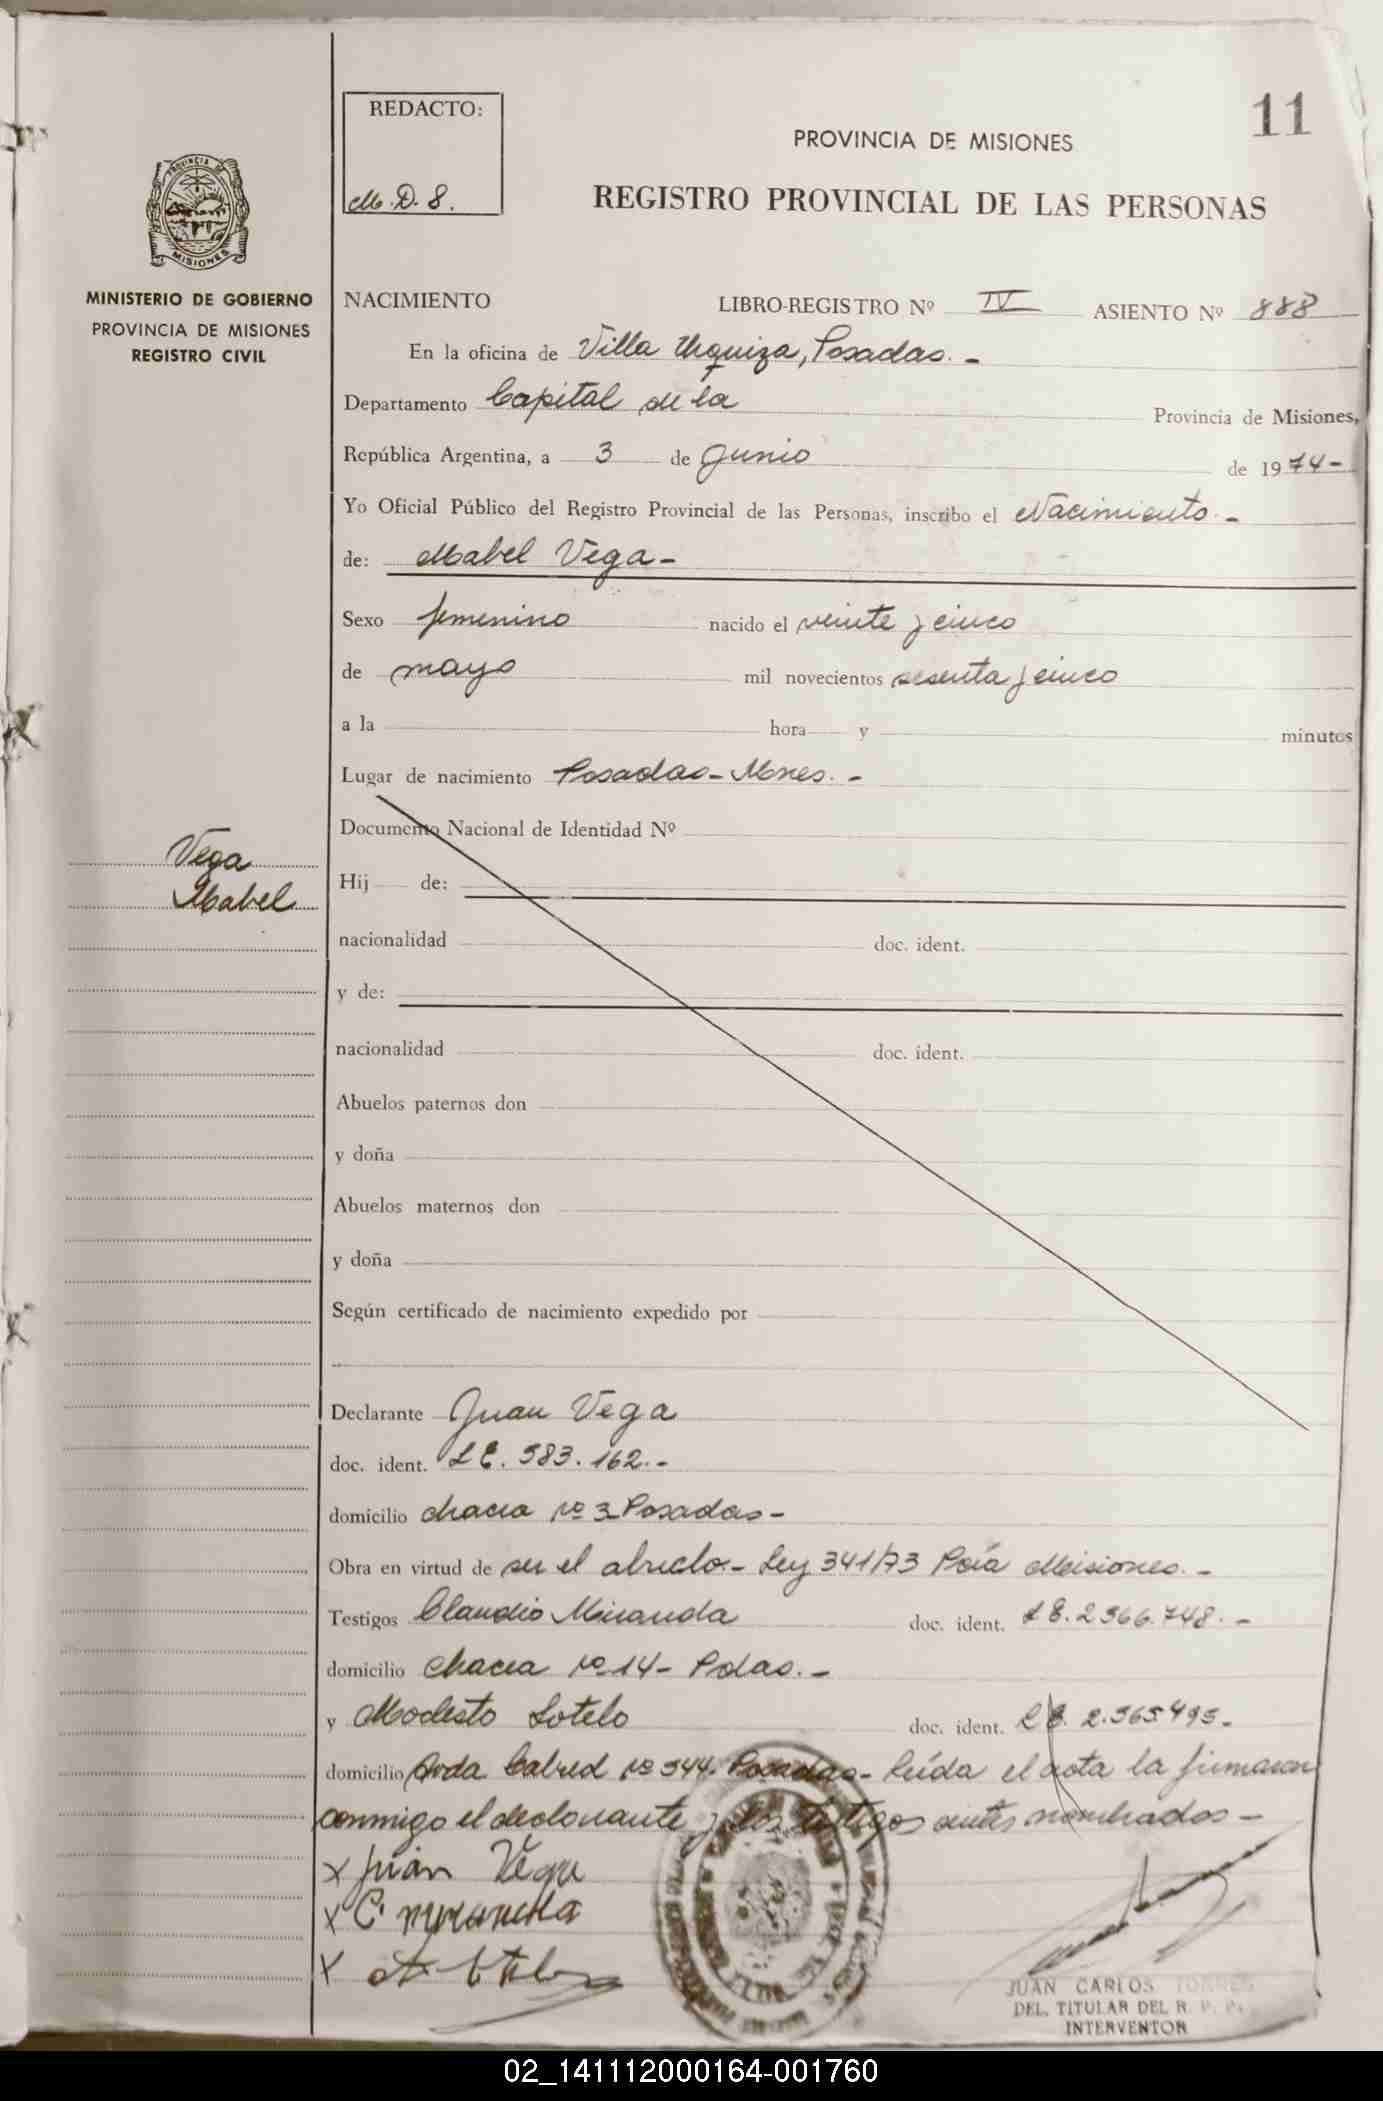 11
REDACTO:
M. D. 8.
PROVINCIA DE MISIONES
REGISTRO PROVINCIAL DE LAS PERSONAS
PROVINCIA DE
MISIONES
MINISTERIO DE GOBIERNO
PROVINCIA DE MISIONES
REGISTRO CIVIL
NACIMIENTO LIBRO-REGISTRO Nº IV ASIENTO Nº 888
En la oficina de Villa Urquiza, Posadas. -
Departamento Capital de la Provincia de Misiones,
República Argentina, a 3 de Junio de 1974-
Yo Oficial Público del Registro Provincial de las Personas, inscribo el Nacimiento. -
de: Mabel Vega -
Sexo femenino nacido el veinte y cinco
de mayo mil novecientos sesenta y cinco
a la hora y minutos
Lugar de nacimiento Posadas - Mnes. -
Documento Nacional de Identidad Nº
Vega
Mabel
Hij de:
nacionalidad doc. ident.
y de:
nacionalidad doc. ident.
Abuelos paternos don
y doña
Abuelos maternos don
y doña
Según certificado de nacimiento expedido por
Declarante Juan Vega
doc. ident. L E. 583. 162. -
domicilio chacra Nº 3 Posadas -
Obra en virtud de ser el abuelo. - Ley 341/73 Pcia Misiones. -
Testigos Claudio Miranda doc. ident. L E. 2566.748. -
domicilio chacra Nº 14 - Pdas. -
y Modesto Sotelo doc. ident. L E. 2.565495. -
domicilio Avda Cabred Nº 544. Posadas - leída el acta la firmaron
conmigo el declarante y los testigos antes nombrados -
x Juan Vega
x C. Miranda
x
JUAN CARLOS TORRES
DEL. TITULAR DEL R. P. P.
INTERVENTOR
02_141112000164-001760